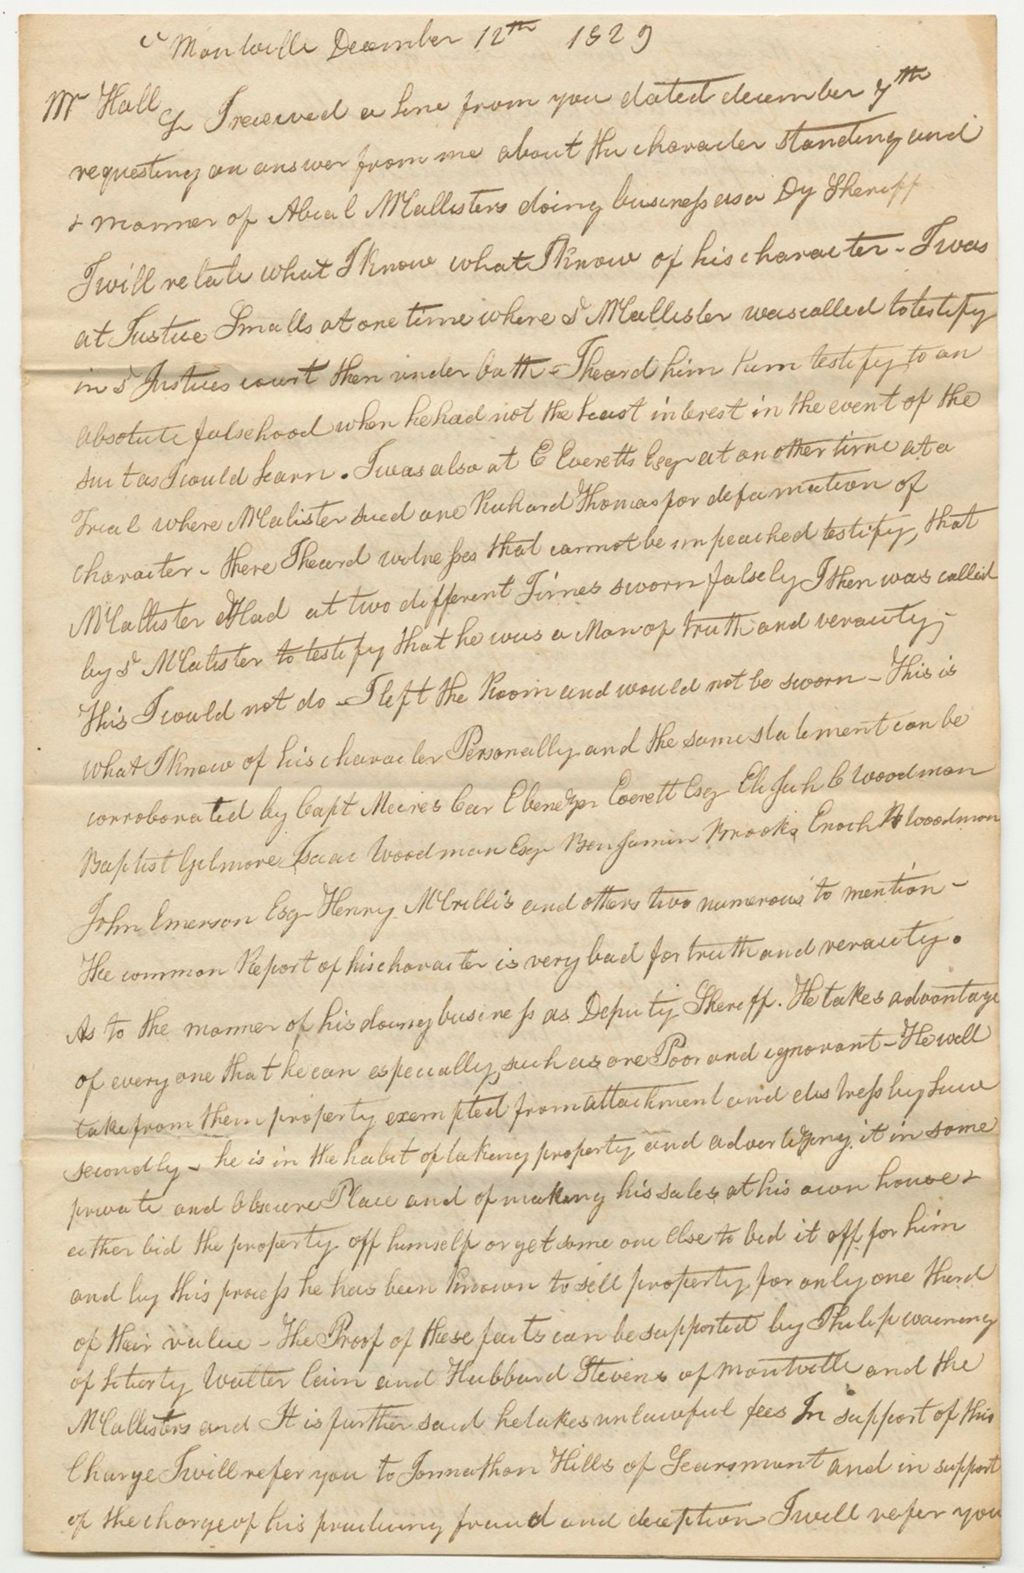 Montville December 12th 1829
Mr Hall
Sr I received a line from you dated december 7th
requesting an answer from me about the character standing and
& manner of Abial McCallisters doing business as a Dy Sheriff
I will relate what I know what I know of his character - I was
at Justice Smalls at one time where sd McCallister was called to testify
in sd Justices court then under oath - I heard him him testify to an
absolute falsehood when he had not the least interest in the event of the
suit as I could learn. I was also at E Everetts Esqr at another time at a
Trial where McCalister sued one Richard Thomas for defamation of
character - there I heard witnesses that cannot be impeached testify, that
McCallister Had at two different Times sworn falsely I then was called
by sd McCalister to testify that he was a Man of truth and veracity -
This I could not do - I left the Room and would not be sworn - This is
what I know of his character Personally and the same statement can be
corroborated by Capt Moires Car Ebenezer Everett Esq Elijah C Woodman
Baptist Gilmore Isaac Woodman Esqr Benjamin Brooks Enoch Woodman
John Emerson Esq - Henry McCrillis and others two numerous to mention -
The common Report of his character is very bad for truth and veracity.
As to the manner of his doing business as Deputy Sheriff. He takes advantage
of every one that he can especially such as are Poor and ignorant - He will
take from them property exempted from attachment and distress by Law
secondly - he is in the habit of taking property and advertizing it in some
private and obscure Place and of making his sales at his own house &
either bid the property off himself or get some one Else to bid it off for him
and by this process he has been Known to sell property for only one third
of their value - The Proof of these facts can be supported by Philip
of Liberty Walter Cain and Hubbard Stevens of montville and the
McCallisters and It is further said he takes unlawful fees In support of this
Charge I will refer you to Jonnathan Hills of Searsmont and in support
of the charge of his practicing fraud and deception I will refer you